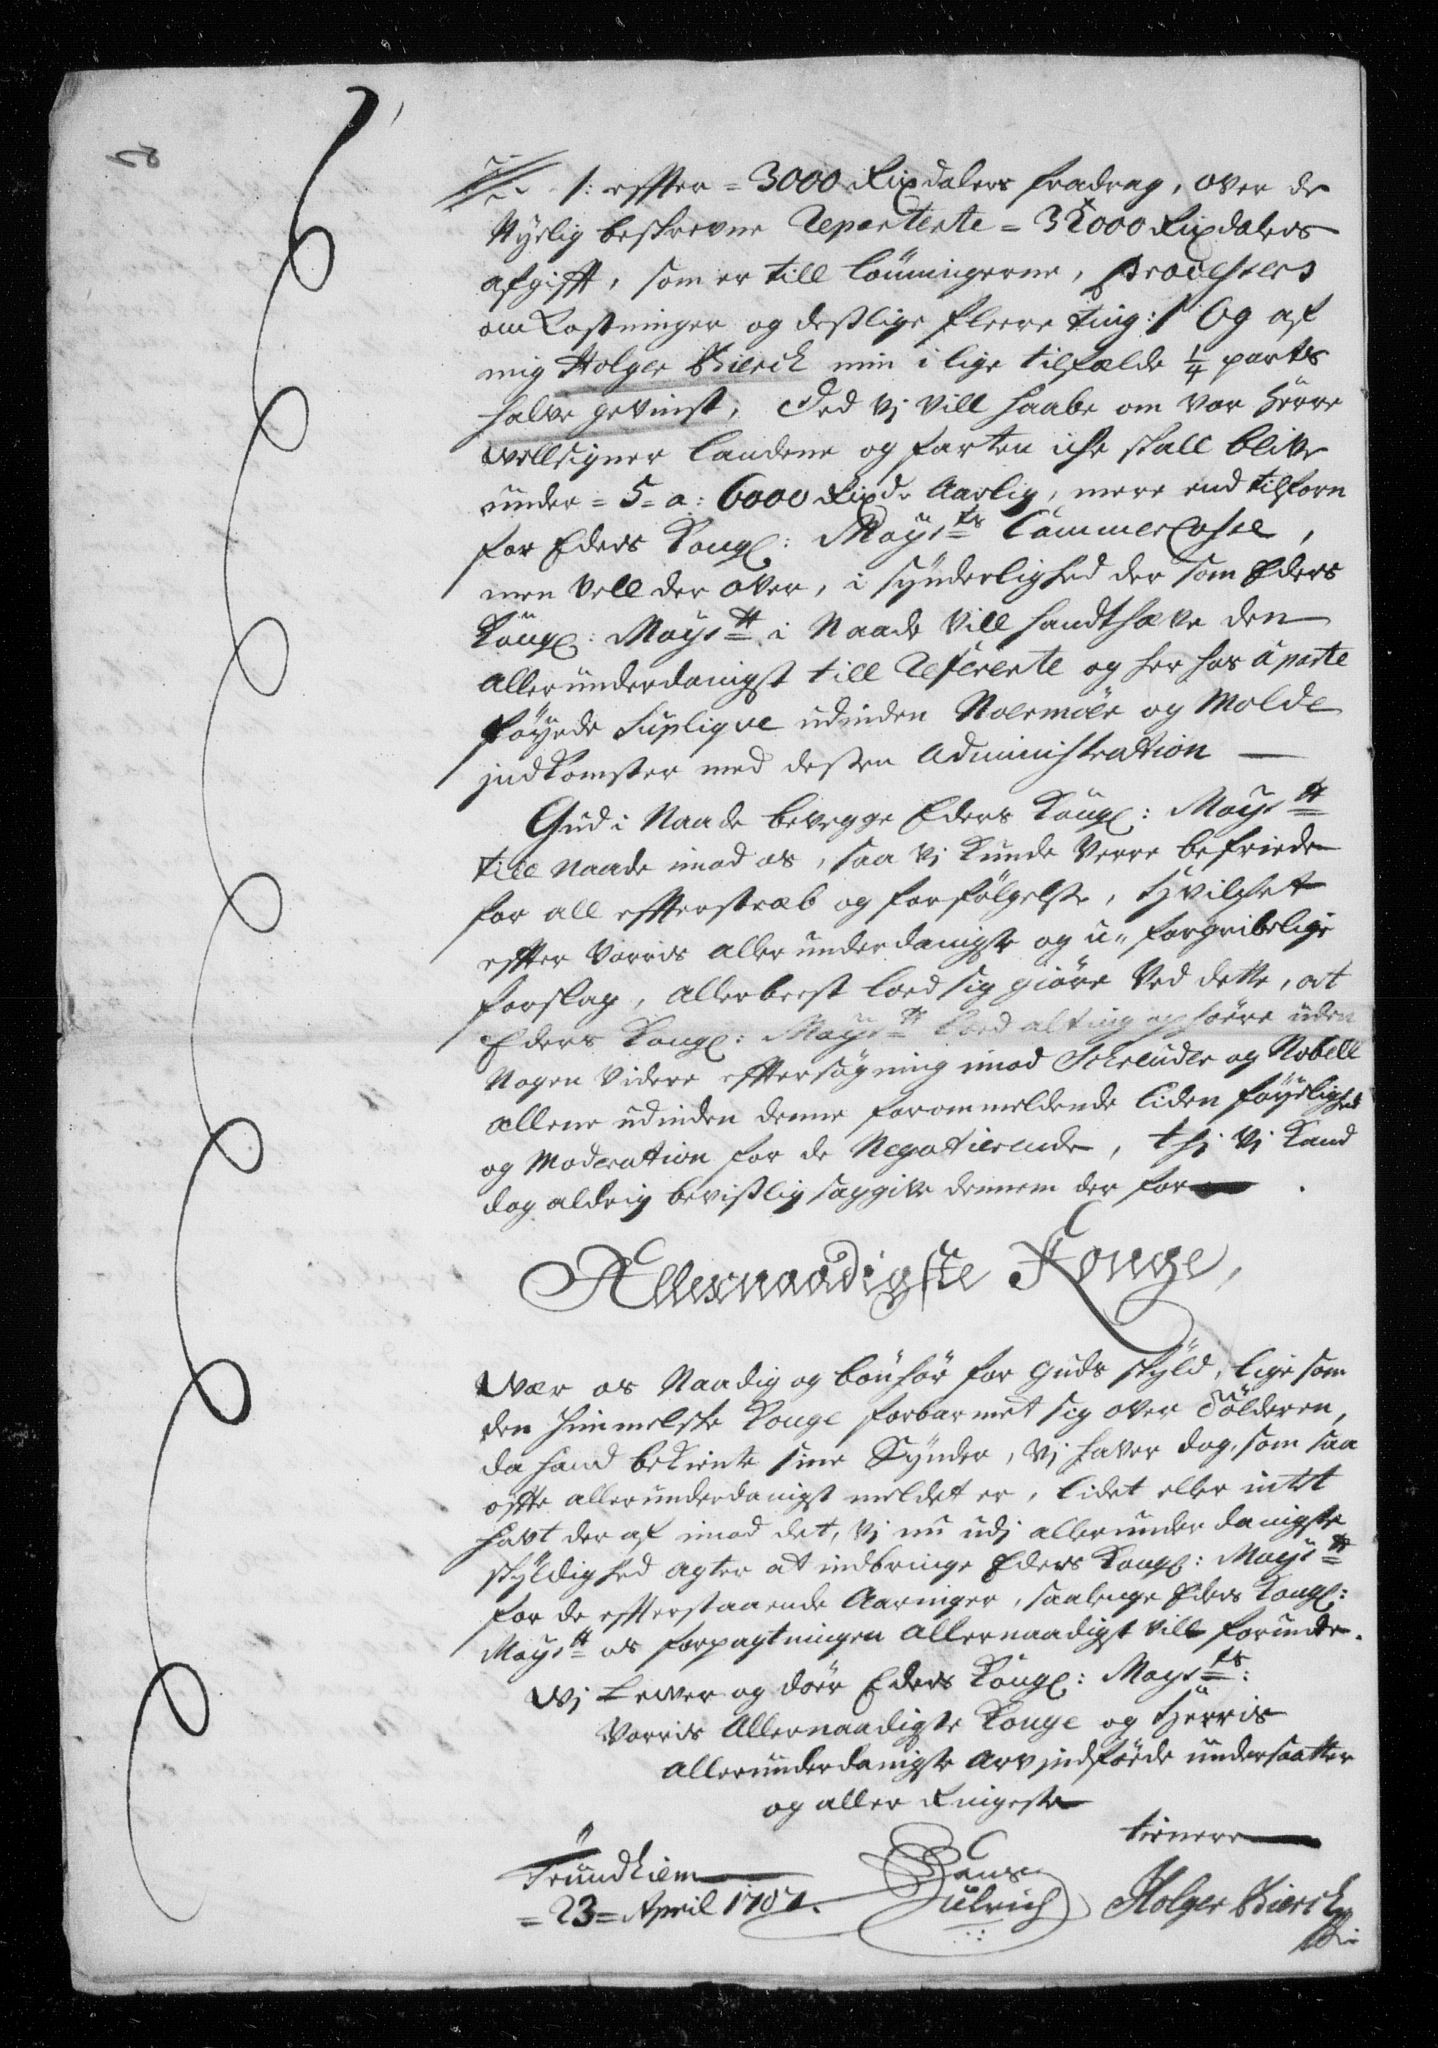 /: effter = 3000 Rixdalers fradrag, over de
Nyelig beskrevne Reparterte = 32000 Rixdalers
afgifft, som er till Lönningerne, Processers
omkostninger og desslige fleere ting :/ Og af
mig Holger Bierck min i lige tilfælde 1/4 parts
halve gevinst, Ded vj vill haabe om vor Herre
wellsigner Landene og farten iche skall blive
under = 5 = a: 6000 Rixdr Aarlig, mere end tilforn
for Eders Kongl: Mayts Cammer Casse,
men vell der over, i synderlighed der som Eders
Kongl: Maytt i Naade vill handthæve den
allerunderdanigst till Refererte og her hos aparte
föyede Supliqve udinden Noermöer og Molde
jndkomster med dessen Administration
Gud i Naade bevegge Eders Kongl: Maytt
till Naade imod os, saa vj kunde verre befriede
for all effterstræb og forfölgelse, Hvilchet
effter vorris allerunderdanigste og u=forgribelige
forslag, allerbeest loed sig giöre ved dette, at
Eders Kongl: Maytt loed alting ophöre uden
Nogen videre effter sögning imod Schreuder og Nobell
allene udinden denne forommeldende liden föyelighed
og Moderation for de Negotierende, thj vj kand
dog aldrig bevisslig saggive dennem der for
Allernaadigste Konge,
Wær os Naadig og bönhör for Guds skyld, lige som
den himmelske Konge forbarmet sig over Tölderen,
da hand bekiente sine Synder, vj haver dog, som saa
offte allerunderdanigst meldet er, lidet eller intet
havt der af imod det, vj nu udj allerunderdanigste
skyldighed agter at indbringe Eders Kongl: Maytt
for de effterstaaende Aaringer, saalenge Eders Kongl:
Maytt os forpagtningen allernaadigst vill forunde.
Wj Lewer og döer Eders Kongl: Mayts:
Vorris Allernaadigste Konge og Herris
allerunderdanigste Arv jndföede undersaatter
og aller Ringeste
tienere
Trundhiem
= 23 = April 1701.
Hans Ulrich
Holger Bierck